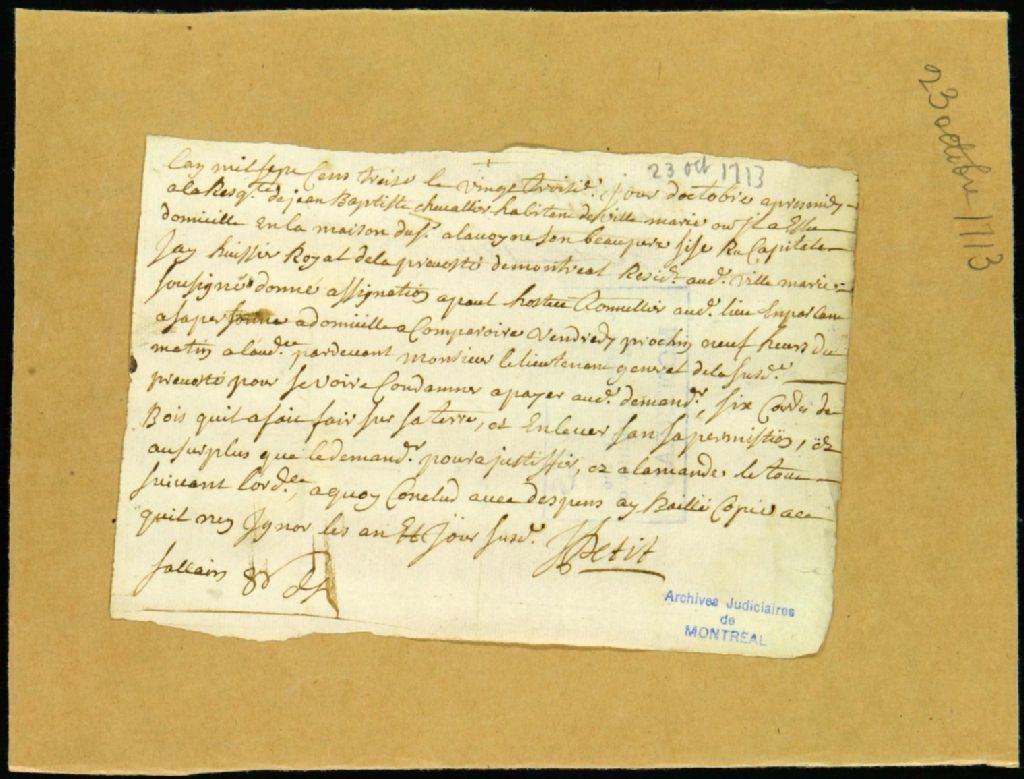 23 octobre 1713
23 oct 1713
Lan mil sept Cens treise le vingt troisie. jour doctobre apresmidy
ala Resqte. de jean Baptiste chevallier habitant de ville marie ou Il a Esleu
domicille En la maison du Sr. alavoyne son beaupere sise Ru Capitale
Jay huissier Royal de la prevosté de montreal Residt. aud. ville marie
sousigné donné assignation a paul hostee Connellier aud. lieu En parlant
a sa personne a domicille a Comparoire vendredy prochin neuf heurs du
matin a laude. pardevant monsieur le lieutenant general de la susde.
prevosté pour se voire Condamner a payer aud. demandr. six Cordes de
Bois quil a fait fair sur sa terre, et Enlever san sa permistion, et
au surplus que le demandr. poura justiffier, et a lamande le tout
suivant lorde. aquoy Conclud avec despens ay Baillé Copie a ce
quil nen Ignor les an Et Jour susd.
JPetit
sallair
Archives Judiciaires
de
MONTRÉAL